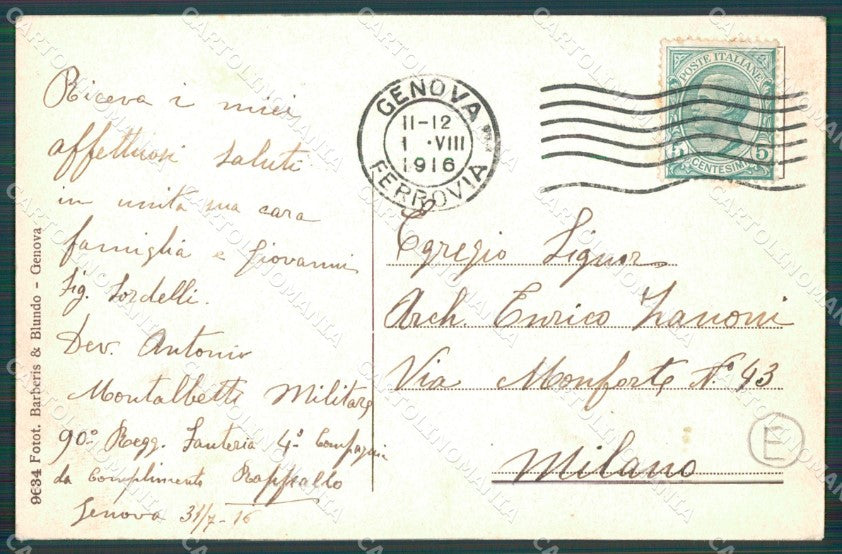 Riceva i miei
affettuosi saluti
in unita sua cara
famiglia e Giovanni
Sig. Sordelli.
Dev. Antonio
Montalbetti Militare
90º Regg. Fanteria 4ª Compagni
da Complimento Rappallo
Genova 31/7-16
9634 Fotot. Barberis & Blundo - Genova
GENOVA
11-12
1 ·VIII
1916
FERROVIA
POSTE ITALIANE
5 CENTESIMI 5
Egregio Signor
Arch. Enrico Zanoni
Via Monforte Nº 43
Milano
E
CARTOLINOMANIA